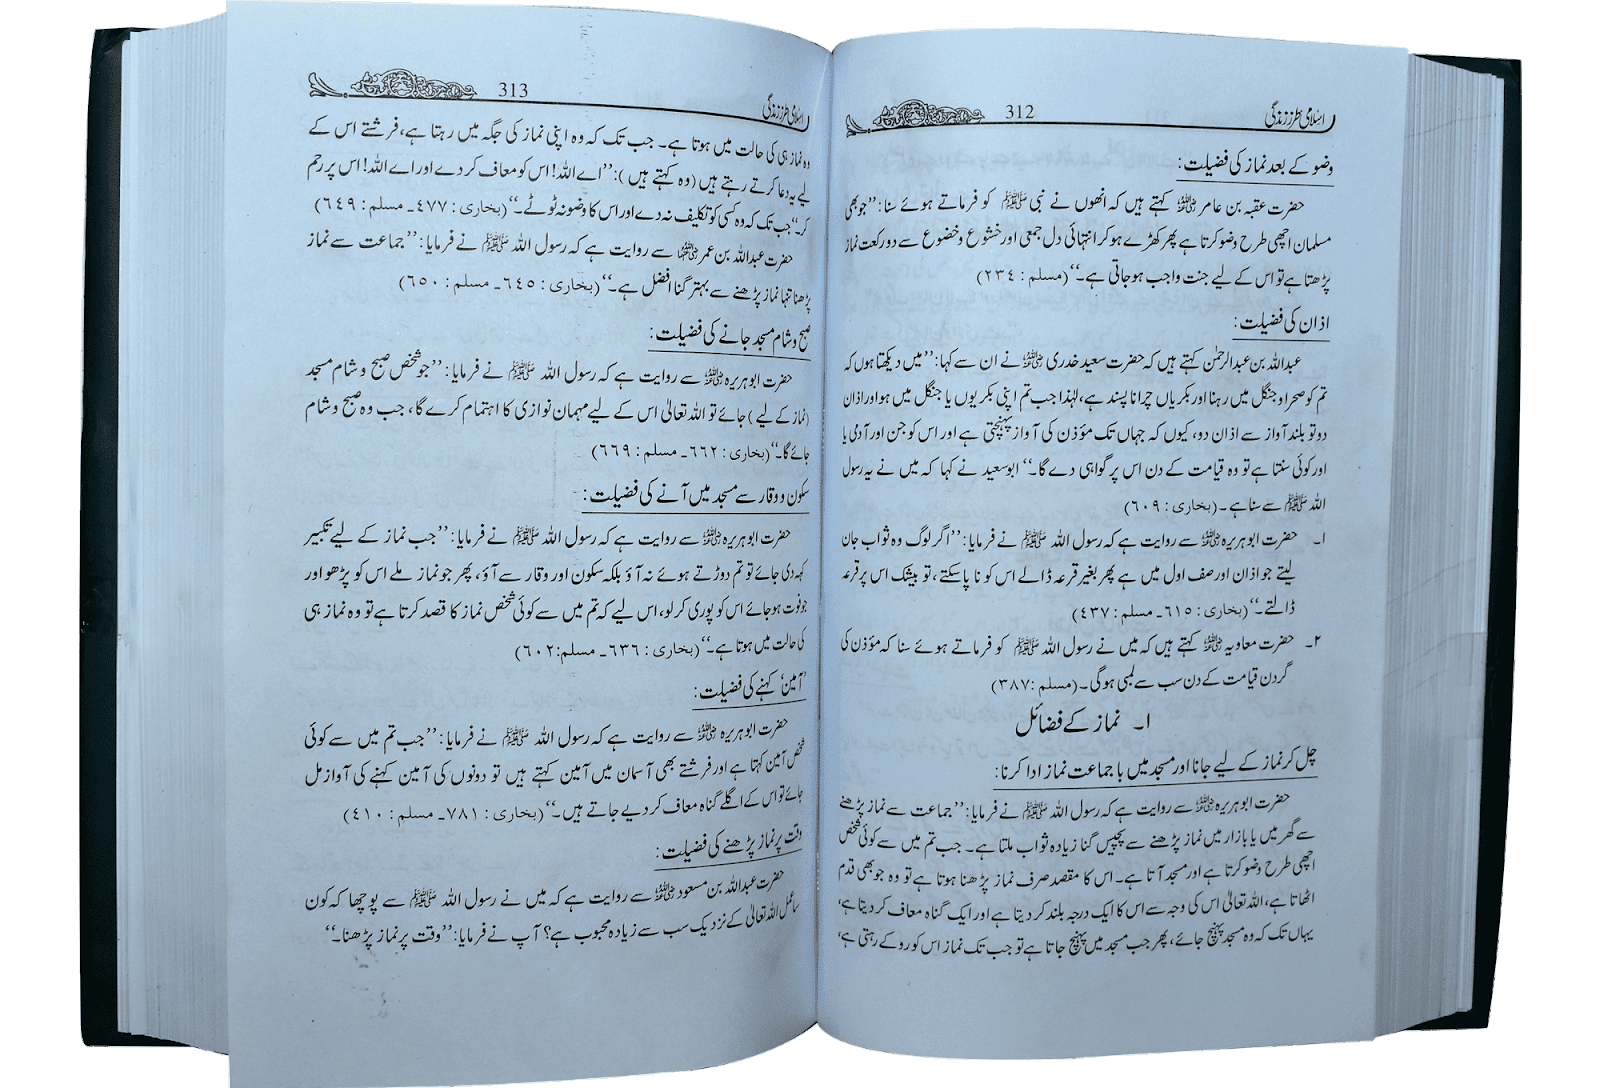 اسلامی طرز زندگی
312
وضو کے بعد نماز کی فضیلت:
حضرت عقبہ بن عامر رضی اللہ عنہ کہتے ہیں کہ انھوں نے نبی ﷺ کو فرماتے ہوئے سنا: ’’جو بھی
مسلمان اچھی طرح وضو کرتا ہے پھر کھڑے ہو کر انتہائی دل جمعی اور خشوع وخضوع سے دو رکعت نماز
پڑھتا ہے تو اس کے لیے جنت واجب ہو جاتی ہے۔‘‘ (مسلم: ۲۳۴)
اذان کی فضیلت:
عبداللہ بن عبدالرحمٰن کہتے ہیں کہ حضرت سعید خدری رضی اللہ عنہ نے ان سے کہا: ’’میں دیکھتا ہوں کہ
تم کو صحرا و جنگل میں رہنا اور بکریاں چرانا پسند ہے، لہٰذا جب تم اپنی بکریوں یا جنگل میں ہو اور اذان
دو تو بلند آواز سے اذان دو، کیوں کہ جہاں تک مؤذن کی آواز پہنچتی ہے اور اس کو جن اور آدمی یا
اور کوئی سنتا ہے تو وہ قیامت کے دن اس پر گواہی دے گا۔‘‘ ابوسعید نے کہا کہ میں نے یہ رسول
اللہ ﷺ سے سنا ہے۔ (بخاری: ۶۰۹)
۱۔ حضرت ابوہریرہ رضی اللہ عنہ سے روایت ہے کہ رسول اللہ ﷺ نے فرمایا: ’’اگر لوگ وہ ثواب جان
لیتے جو اذان اور صف اول میں ہے پھر بغیر قرعہ ڈالے اس کو نا پا سکتے، تو بیشک اس پر قرعہ
ڈالتے۔‘‘ (بخاری: ۶۱۵۔ مسلم: ۴۳۷)
۲۔ حضرت معاویہ رضی اللہ عنہ کہتے ہیں کہ میں نے رسول اللہ ﷺ کو فرماتے ہوئے سنا کہ مؤذن کی
گردن قیامت کے دن سب سے لمبی ہوگی۔ (مسلم: ۳۸۷)
۱۔ نماز کے فضائل
چل کر نماز کے لیے جانا اور مسجد میں با جماعت نماز ادا کرنا:
حضرت ابوہریرہ رضی اللہ عنہ سے روایت ہے کہ رسول اللہ ﷺ نے فرمایا: ’’جماعت سے نماز پڑھنے
سے گھر میں یا بازار میں نماز پڑھنے سے پچیس گنا زیادہ ثواب ملتا ہے۔ جب تم میں سے کوئی شخص
اچھی طرح وضو کرتا ہے اور مسجد آتا ہے۔ اس کا مقصد صرف نماز پڑھنا ہوتا ہے تو وہ جو بھی قدم
اٹھاتا ہے، اللہ تعالیٰ اس کی وجہ سے اس کا ایک درجہ بلند کر دیتا ہے اور ایک گناہ معاف کر دیتا ہے،
یہاں تک کہ وہ مسجد پہنچ جائے، پھر جب مسجد میں پہنچ جاتا ہے تو جب تک نماز اس کو روکے رہتی ہے،
اسلامی طرز زندگی
313
وہ نماز ہی کی حالت میں ہوتا ہے۔ جب تک کہ وہ اپنی نماز کی جگہ میں رہتا ہے، فرشتے اس کے
لیے یہ دعا کرتے رہتے ہیں (وہ کہتے ہیں): ’’اے اللہ! اس کو معاف کر دے اور اے اللہ! اس پر رحم
کر۔‘‘ جب تک کہ وہ کسی کو تکلیف نہ دے اور اس کا وضو نہ ٹوٹے۔‘‘ (بخاری: ۴۷۷۔ مسلم: ۶۴۹)
حضرت عبداللہ بن عمر رضی اللہ عنہما سے روایت ہے کہ رسول اللہ ﷺ نے فرمایا: ’’جماعت سے نماز
پڑھنا تنہا نماز پڑھنے سے بہتر گنا افضل ہے۔‘‘ (بخاری: ۶۴۵۔ مسلم: ۶۵۰)
صبح و شام مسجد جانے کی فضیلت:
حضرت ابوہریرہ رضی اللہ عنہ سے روایت ہے کہ رسول اللہ ﷺ نے فرمایا: ’’جو شخص صبح و شام مسجد
(نماز کے لیے) جائے تو اللہ تعالیٰ اس کے لیے مہمان نوازی کا اہتمام کرے گا، جب وہ صبح و شام
جائے گا۔‘‘ (بخاری: ۶۶۲۔ مسلم: ۶۶۹)
سکون و وقار سے مسجد میں آنے کی فضیلت:
حضرت ابوہریرہ رضی اللہ عنہ سے روایت ہے کہ رسول اللہ ﷺ نے فرمایا: ’’جب نماز کے لیے تکبیر
کہہ دی جائے تو تم دوڑتے ہوئے نہ آؤ بلکہ سکون اور وقار سے آؤ، پھر جو نماز ملے اس کو پڑھو اور
جو فوت ہو جائے اس کو پوری کر لو، اس لیے کہ تم میں سے کوئی شخص نماز کا قصد کرتا ہے تو وہ نماز ہی
کی حالت میں ہوتا ہے۔‘‘ (بخاری: ۶۳۶۔ مسلم: ۶۰۲)
’آمین‘ کہنے کی فضیلت:
حضرت ابوہریرہ رضی اللہ عنہ سے روایت ہے کہ رسول اللہ ﷺ نے فرمایا: ’’جب تم میں سے کوئی
شخص آمین کہتا ہے اور فرشتے بھی آسمان میں آمین کہتے ہیں تو دونوں کی آمین کہنے کی آواز مل
جائے تو اس کے اگلے گناہ معاف کر دیے جاتے ہیں۔‘‘ (بخاری: ۷۸۱۔ مسلم: ۴۱۰)
وقت پر نماز پڑھنے کی فضیلت:
حضرت عبداللہ بن مسعود رضی اللہ عنہ سے روایت ہے کہ میں نے رسول اللہ ﷺ سے پوچھا کہ کون
سا عمل اللہ تعالیٰ کے نزدیک سب سے زیادہ محبوب ہے؟ آپ نے فرمایا: ’’وقت پر نماز پڑھنا۔‘‘